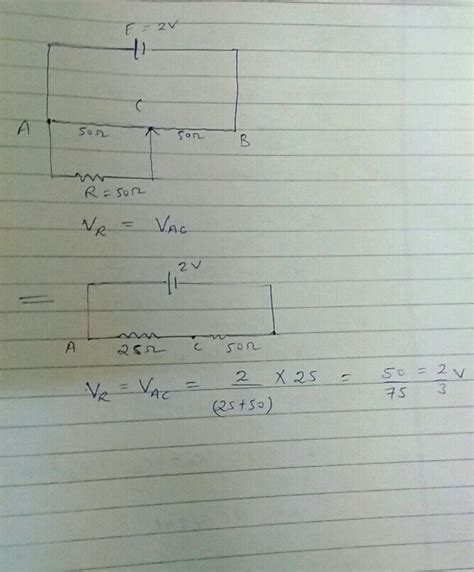 E = 2V
C
A 50Ω 50Ω B
R = 50Ω
V_R = V_AC
=
2V
A 25Ω C 50Ω
V_R = V_AC = 2/(25+50) × 25 = 50/75 = 2/3 V